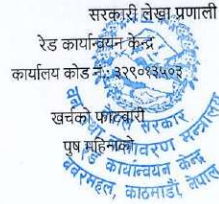 सरकारी लेखा प्रणाली
रेड कार्यान्वयन केन्द्र
कार्यालय कोड नं.: ३२९०१३५०३
खर्चको फाटवारी
पुष महिनाको
नेपाल सरकार
वन तथा वातावरण मन्त्रालय
रेड कार्यान्वयन केन्द्र
बबरमहल, काठमाडौं, नेपाल